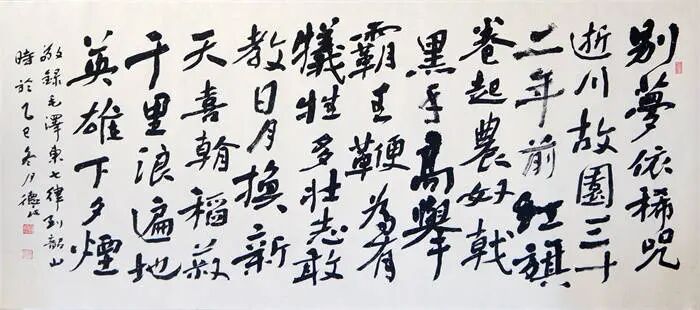 别夢依稀咒
逝川故園三十
二年前紅旗
卷起農奴戟
黑手高舉
霸主鞭為有
犧牲多壯志敢
教日月換新
天喜看稻菽
千里浪遍地
英雄下夕煙
敬錄毛澤東七律到韶山
時於乙巳冬月德